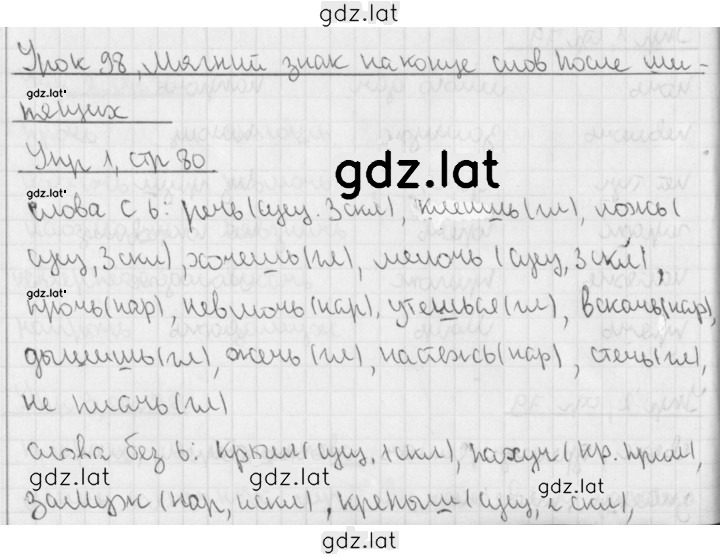 gdz.lat
Урок 98, Мягкий знак на конце слов после ши-
gdz.lat
пящих
Упр 1, стр 80
gdz.lat
gdz.lat
слова с ь: речь (сущ. 3 скл), (гл), ложь (
сущ, 3 скл), хочешь (гл), мелочь (сущ, 3 скл),
gdz.lat
прочь (нар), невмочь (нар), утешься (гл), вскачь (нар),
дышишь (гл), жечь (гл), настежь (нар), стечь (гл),
не плачь (гл)
слова без ь: (сущ, скл), пахуч (кр. прил),
gdz.lat gdz.lat gdz.lat
замуж (нар, искл), крепыш (сущ, скл),
gdz.lat